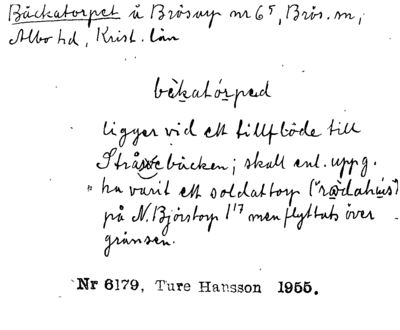 Bäckatorpet å Brösarp nr 6⁵, Brös. sn,
Albo hd, Krist. län
bèkatórpad
ligger vid ett tillflöde till
bäcken; skall enl. uppg.
ha varit ett soldattorp
på N. Björstorp 1¹⁷ men flyttats över
gränsen.
Nr 6179, Ture Hansson 1955.